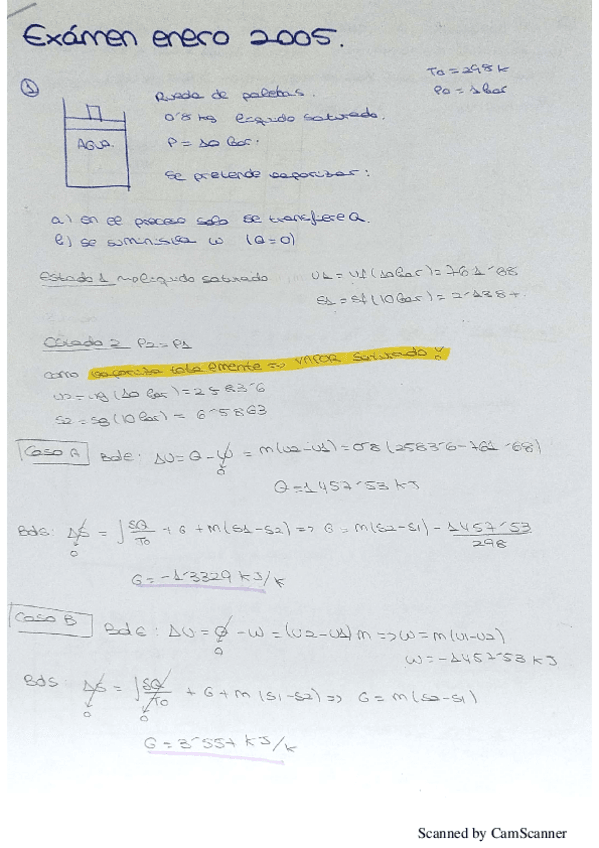 Exámen enero 2005.
T0 = 298 K
P0 = 1 bar
① Rueda de paletas.
0'8 kg líquido saturado.
AGUA. P = 10 bar.
se pretende vaporizar:
a) en el proceso solo se transfiere Q.
b) se suministra W (Q=0)
Estado 1 líquido saturado U1 = Uf (10bar) = 761'68
S1 = Sf (10bar) = 2'1387.
Estado 2 P2 = P1
como vaporiza totalmente => VAPOR saturado!
U2 = Ug (10 bar) = 2583'6
S2 = Sg (10 bar) = 6'5863
Caso A BdE: ΔU = Q - W = m(U2-U1) = 0'8 (2583'6 - 761'68)
0
Q = 1457'53 kJ
BdS: ΔS = ∫ δQ/T0 + G + m(S1-S2) => G = m(S2-S1) - 1457'53/298
0
G = -1'3329 kJ/K
Caso B BdE: ΔU = Q - W = (U2-U1) m => W = m(U1-U2)
0
W = -1457'53 kJ
BdS: ΔS = ∫ δQ/T0 + G + m (S1-S2) => G = m(S2-S1)
0 0
G = 3'557 kJ/K
Scanned by CamScanner